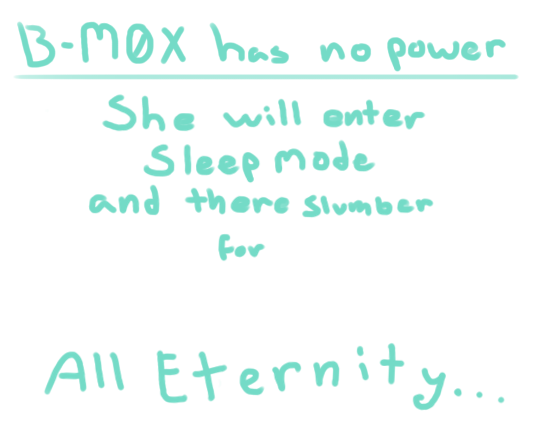 B-MØX has no power
She will enter
Sleep mode
and there slumber
for
All Eternity...